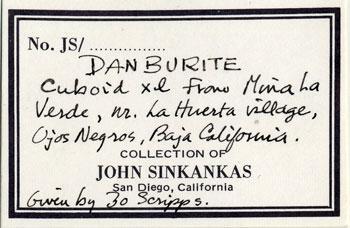 No. JS/ ................
DANBURITE
Cuboid xl from Mina La
Verde, nr. La Huerta village,
Ojos Negros, Baja California.
COLLECTION OF
JOHN SINKANKAS
San Diego, California
Given by Bo Scripps.